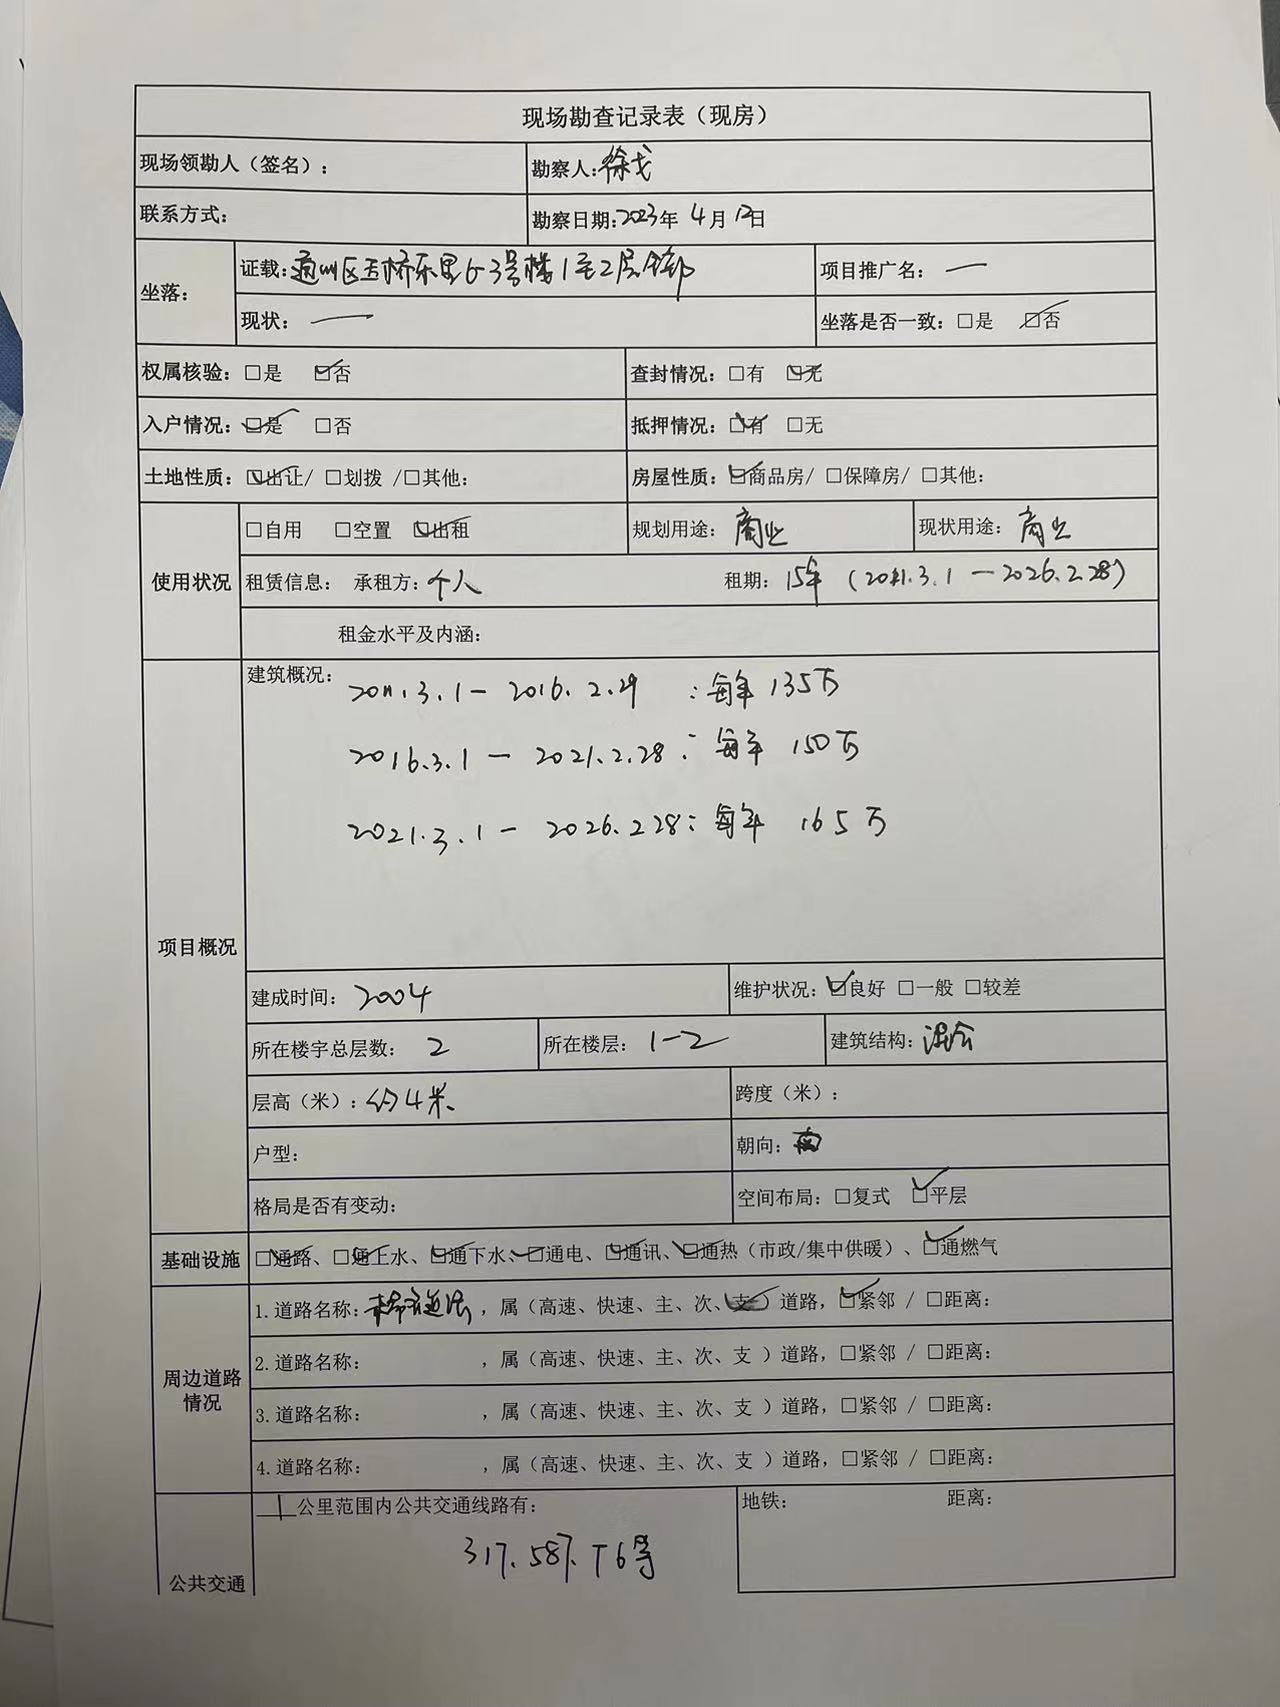 现场勘查记录表（现房）
现场领勘人（签名）： 勘察人:徐戈
联系方式: 勘察日期:2023年 4月 12日
坐落: 证载:通州区玉桥东里63号楼1至2层全部 项目推广名: —
现状: — 坐落是否一致: □是 ☑否
权属核验: □是 ☑否 查封情况: □有 ☑无
入户情况: ☑是 □否 抵押情况: ☑有 □无
土地性质: ☑出让/ □划拨 /□其他: 房屋性质: ☑商品房/ □保障房/ □其他:
使用状况 □自用 □空置 ☑出租 规划用途: 商业 现状用途: 商业
租赁信息: 承租方: 个人 租期: 15年 (2011.3.1 — 2026.2.28)
租金水平及内涵:
项目概况 建筑概况:
2011.3.1 — 2016.2.29 : 每年 135万
2016.3.1 — 2021.2.28 : 每年 150万
2021.3.1 — 2026.2.28 : 每年 165万
建成时间: 2004 维护状况: ☑良好 □一般 □较差
所在楼宇总层数: 2 所在楼层: 1-2 建筑结构: 混合
层高（米）: 约4米 跨度（米）:
户型: 朝向:
格局是否有变动: 空间布局: □复式 ☑平层
基础设施 ☑通路、☑通上水、☑通下水、☑通电、☑通讯、☑通热（市政/集中供暖）、☑通燃气
周边道路情况 1.道路名称: ，属（高速、快速、主、次、支）道路，☑紧邻 / □距离:
2.道路名称: ，属（高速、快速、主、次、支 ）道路，□紧邻 / □距离:
3.道路名称: ，属（高速、快速、主、次、支 ）道路，□紧邻 / □距离:
4.道路名称: ，属（高速、快速、主、次、支 ）道路，□紧邻 / □距离:
公共交通 1公里范围内公共交通线路有: 地铁: 距离:
317、587、T6等